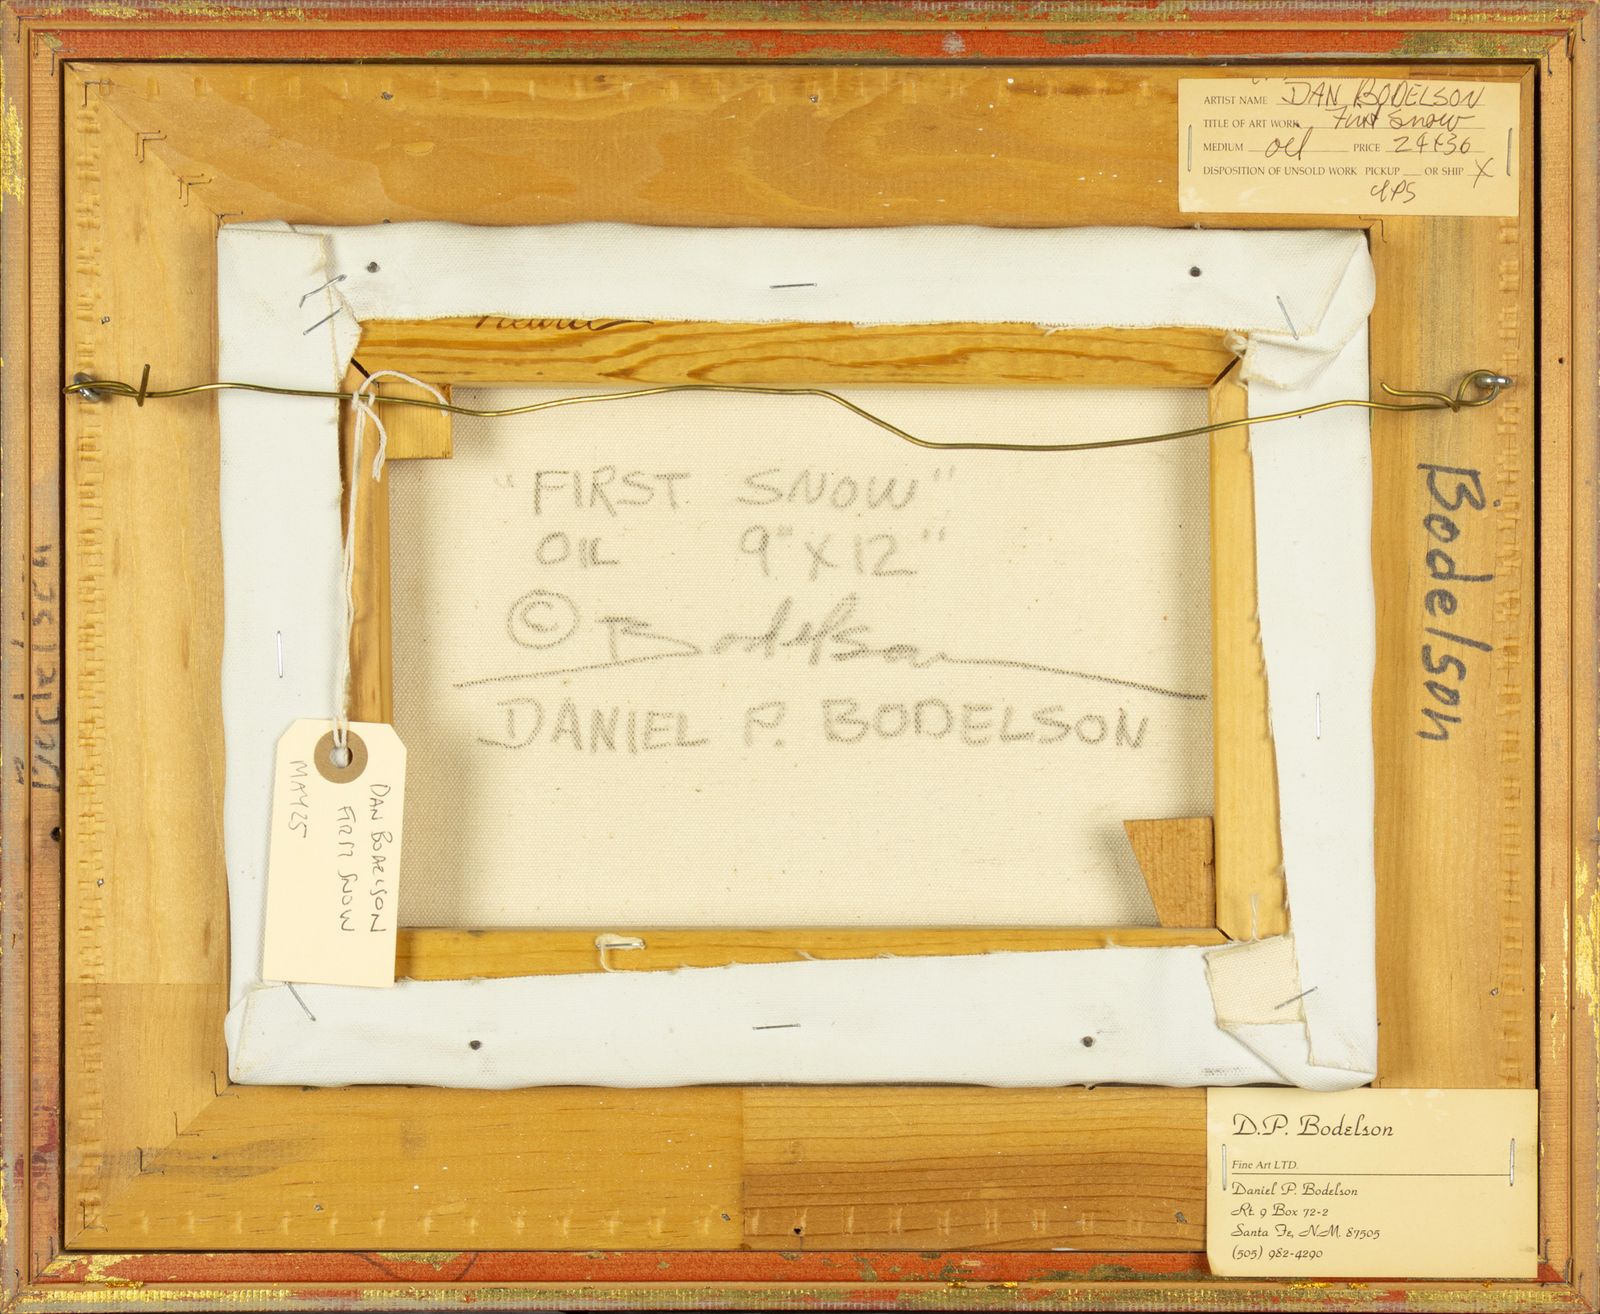 ARTIST NAME DAN BODELSON
TITLE OF ART WORK First Snow
MEDIUM oil PRICE
DISPOSITION OF UNSOLD WORK PICKUP OR SHIP X
UPS
"FIRST SNOW"
OIL 9" X 12"
© Bodelson
DANIEL P. BODELSON
Bodelson
Bodelson
DAN BODELSON
FIRST SNOW
MAY 25
D.P. Bodelson
Fine Art LTD.
Daniel P. Bodelson
Rt. 9 Box 72-2
Santa Fe, N.M. 87505
(505) 982-4290